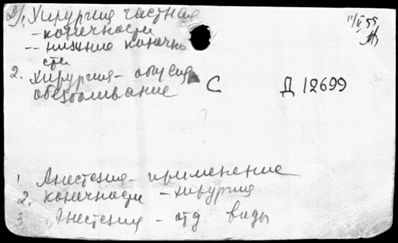 Хирургия частная
- конечности
-- нижние конечно
сти
2. Хирургия - общая
обезболивание
С
Д 12699
1. Анестезия - применение
2. Конечности - хирургия
3. Анестезия - отд виды